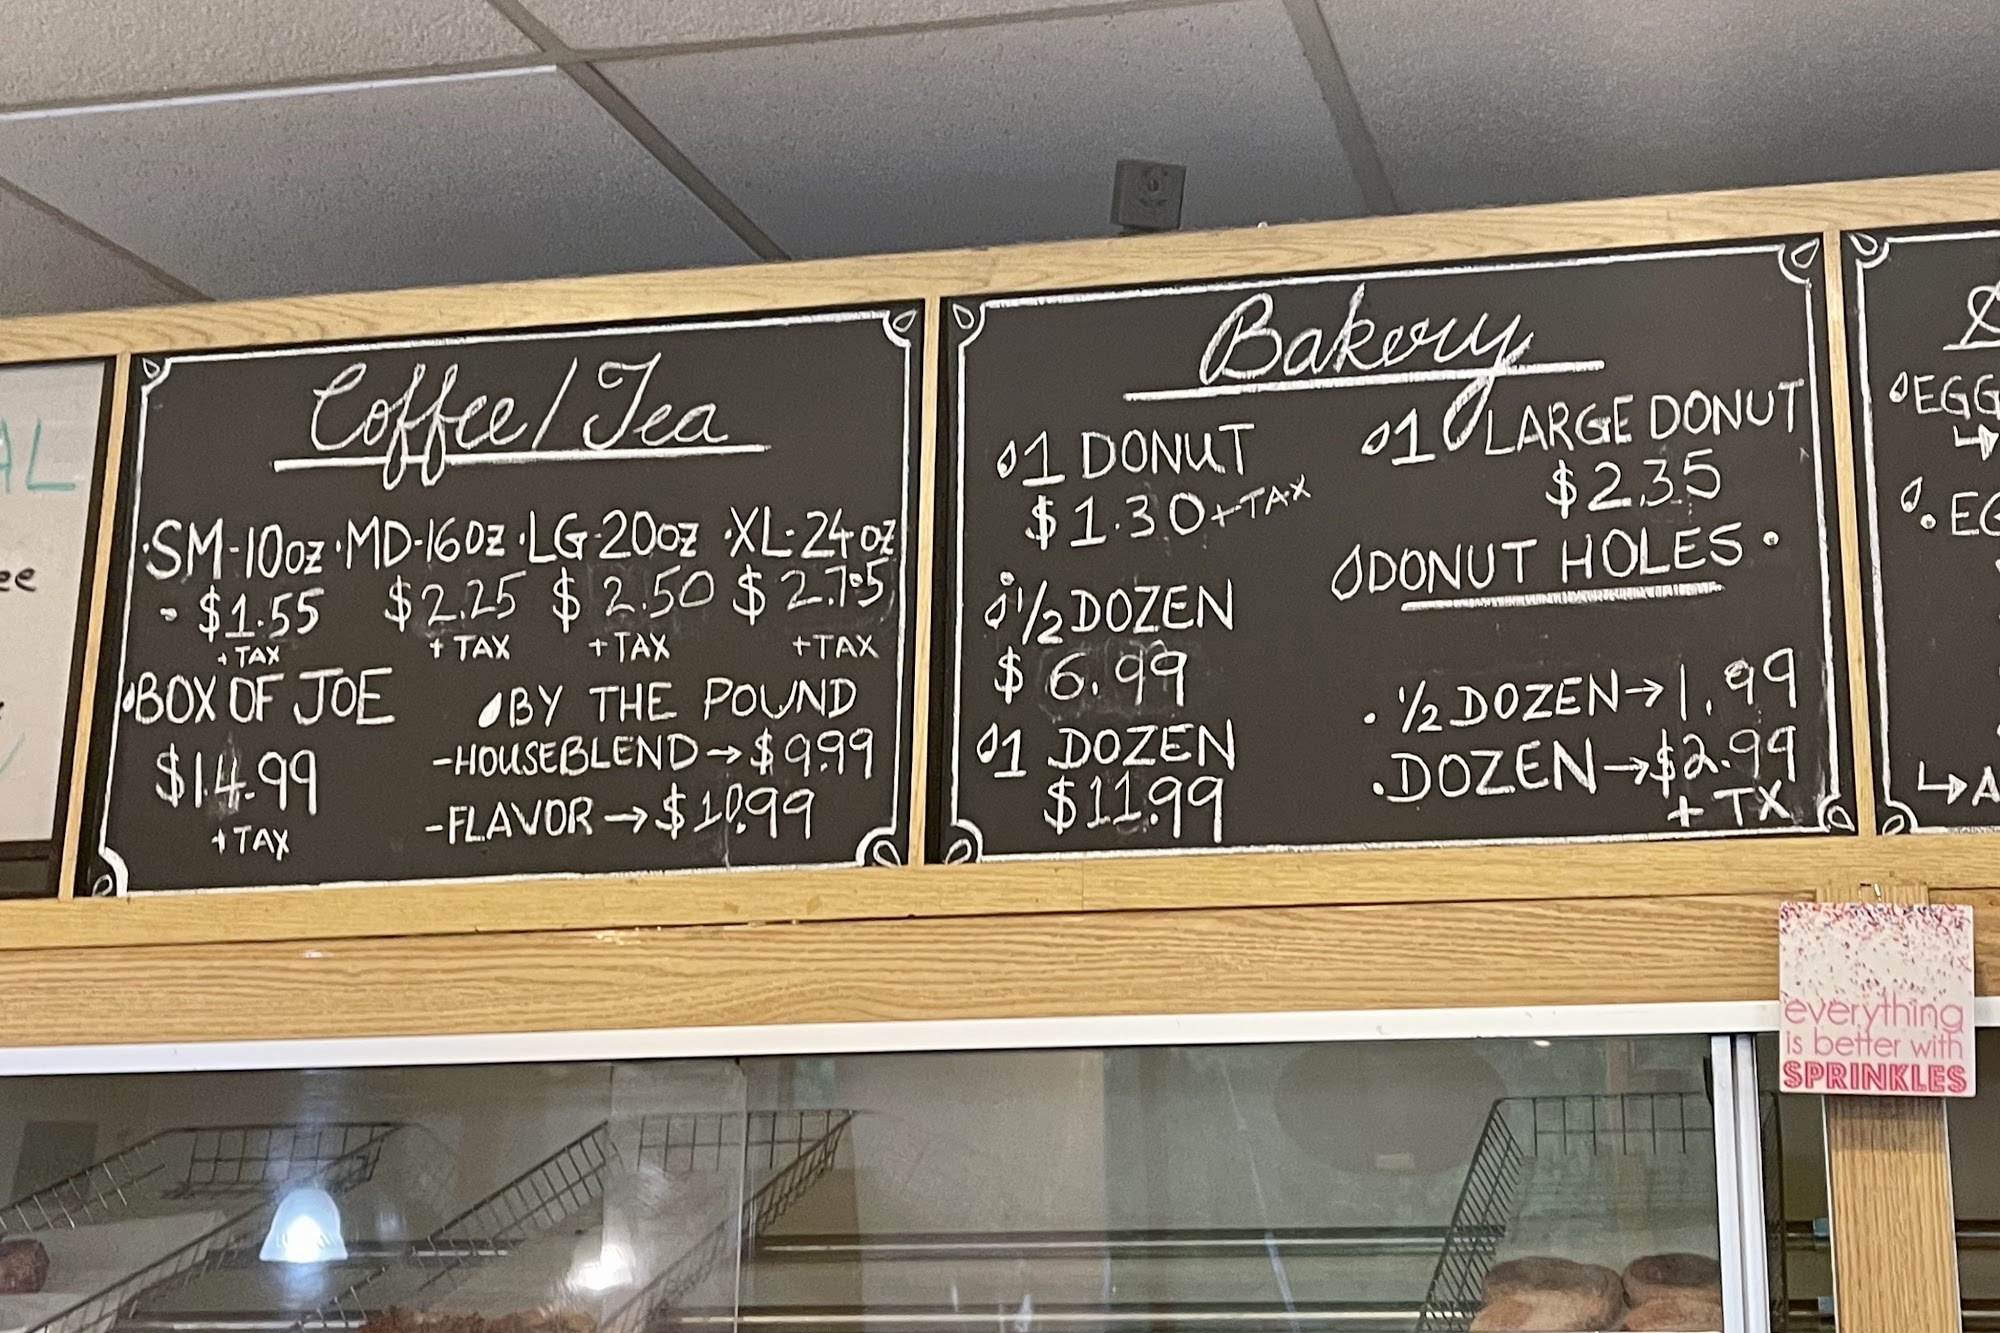 AL
ee
Coffee/Tea
·SM-10oz ·MD-16oz ·LG-20oz ·XL-24oz
- $1.55 $2.25 $2.50 $2.75
+TAX +TAX +TAX +TAX
BOX OF JOE
$14.99
+TAX
BY THE POUND
-HOUSEBLEND→$9.99
-FLAVOR→$10.99
Bakery
1 DONUT
$1.30+TAX
1/2 DOZEN
$6.99
1 DOZEN
$11.99
1 LARGE DONUT
$2.35
DONUT HOLES·
·1/2 DOZEN→1.99
·DOZEN→$2.99
+TX
EGG
EG
↳A
everything
is better with
SPRINKLES